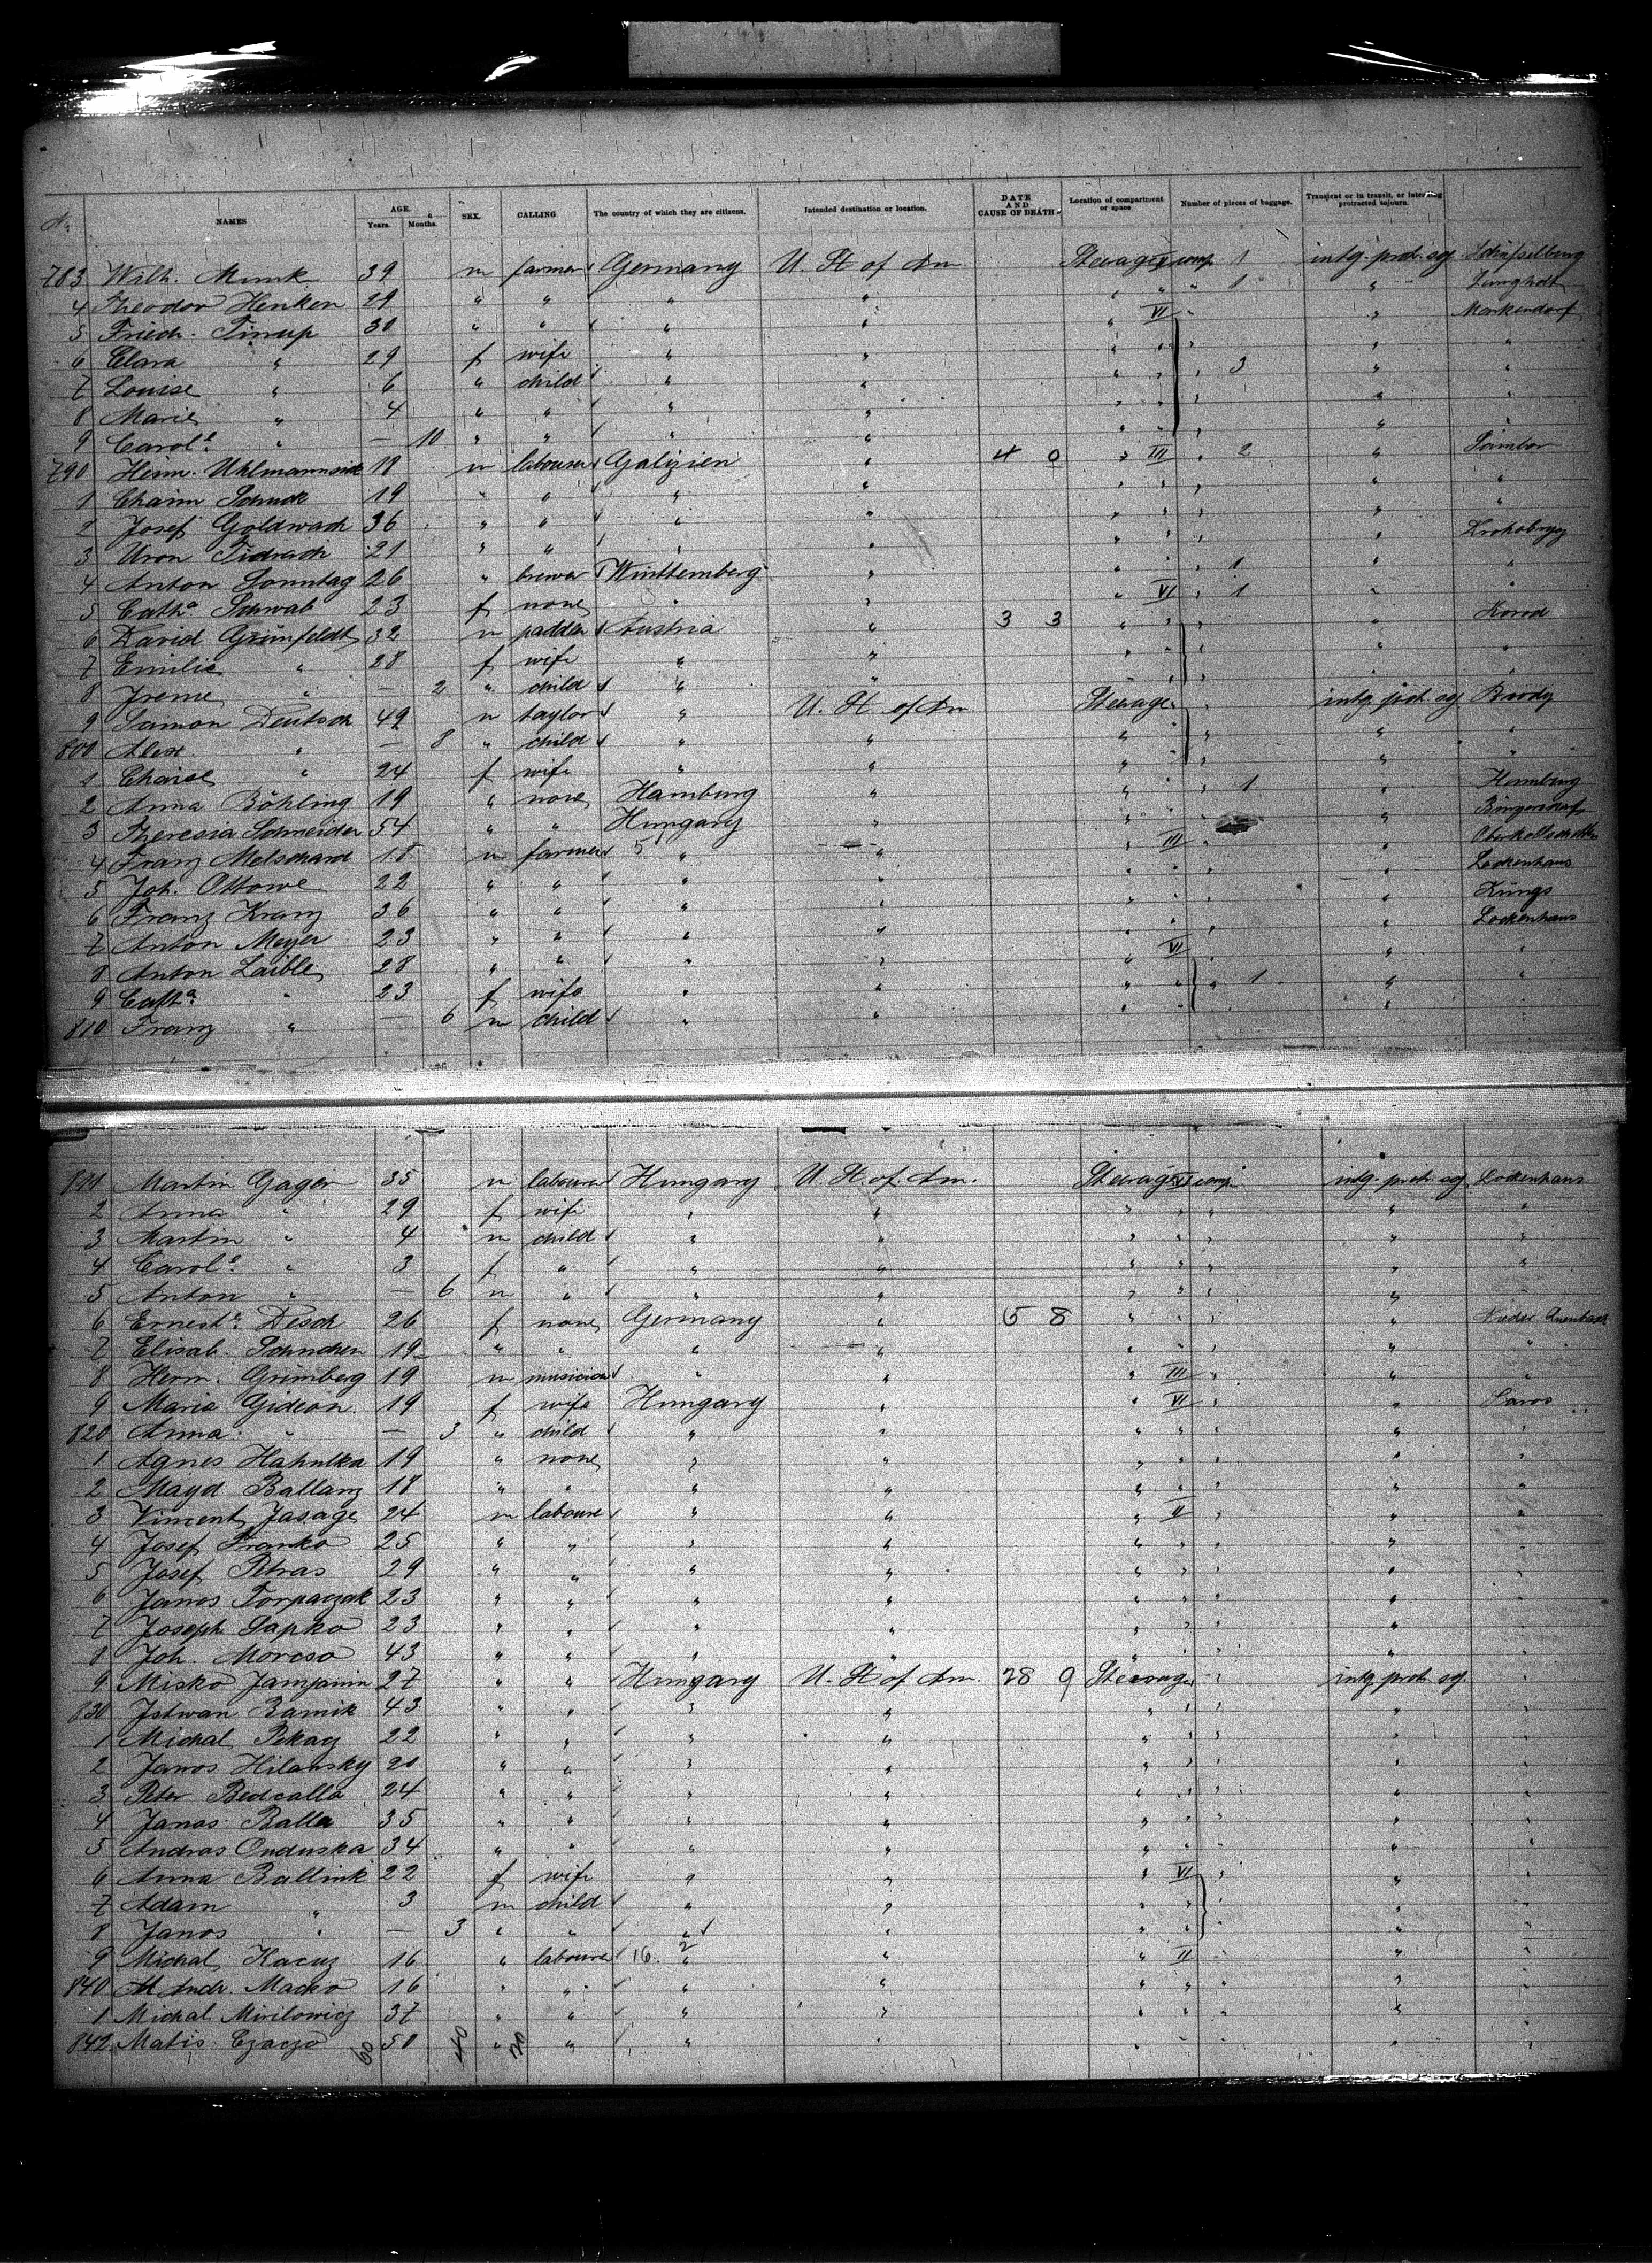 No. NAMES AGE. Years. Months. SEX. CALLING. The country of which they are citizens. Intended destination or location. DATE AND CAUSE OF DEATH. Location of compartment or space Number of pieces of baggage. Transient or in transit, or intending protracted sojourn.
783 Wilh. Munk 39 m farmer Germany U. St of Am Steerage comp 1 intg. prot. soj
4 Theodor Henken 29 " " " " " " 1 "
5 Friedr. Tinup 30 " " " " " VI " " Markendorf
6 Clara " 29 f wife " " " " " 3 " "
7 Louise " 6 " child " " " " " " "
8 Marie " 4 " " " " " " " " "
9 Carol.e " — 10 " " " " " " " " "
790 18 m labourer Galizien " 4 0 " III " 2 " Sambor
1 Chaim 19 " " " " " " " " "
2 Josef Goldwach 36 " " " " " " " " "
3 21 " " " " " " " "
4 Anton Sonntag 26 " brewer Württemberg " " " " 1 " "
5 Cath.a Schwab 23 f none " " " VI " 1 " "
6 David Grünfeldt 32 m Austria " 3 3 " " " "
7 Emilie " 28 f wife " " " " " " "
8 Irene " — 2 " child " " " " " " "
9 Samon Deutsch 49 m taylor " U. St of Am Steerage " intg. prot. soj Brody
800 Alex. " — 8 " child " " " " " " "
1 " 24 f wife " " " " " " "
2 Anna Böhling 19 " none Hamburg " " " " 1 " Hamburg
3 Theresia Schneider 54 " " Hungary " " " " "
4 Franz Melschard 18 m farmer 5 " " " III " "
5 Joh. Ottowe 22 " " " " " " " " Lockenhaus
6 Franz Kranz 36 " " " " " " " "
7 Anton Meyer 23 " " " " " " " " Lockenhaus
8 Anton Laible 28 " " " " " VI " " "
9 Cath.a " 23 f wife " " " " " 1 " "
810 Franz " — 6 m child " " " " " " "
811 Martin Gager 35 m labourer Hungary U. St. of. Am. Steerage comp intg. prot. soj Lockenhaus
2 Anna " 29 f wife " " " " " " "
3 Martin " 4 m child " " " " " " "
4 Carol.e " 3 f " " " " " " " "
5 Anton " — 6 m " " " " " " "
6 Ernest.e Desch 26 f none Germany " 5 8 " " " " Nieder
7 Elisab. 19 " " " " " " " " "
8 Herm. Grünberg 19 m musician " " " III " " "
9 Maria Gideon 19 f wife Hungary " " VI " " Saros
820 Anna " — 3 " child " " " " " " "
1 Agnes Hahulka 19 " none " " " " " " "
2 Mayd Ballanz 18 " " " " " " " " "
3 Vincent Jasage 24 m laboure " " " II " " "
4 Josef Franko 25 " " " " " " " " "
5 Josef Petras 29 " " " " " " " " "
6 Janos Torpaczak 23 " " " " " " " " "
7 Joseph Sapko 23 " " " " " " " " "
8 Joh. Morcso 43 " " " " " " " " "
9 Misko 27 " " Hungary U. St of Am. 28 9 Steerage " intg. prot. soj. "
830 Istwan Bamik 43 " " " " " " " " "
1 Michal Pekay 22 " " " " " " " " "
2 Janos Hilansky 20 " " " " " " " " "
3 Peter Bedcalla 24 " " " " " " " " "
4 Janos Balla 35 " " " " " " " " "
5 Andras Onduska 34 " " " " " " " " "
6 Anna Ballink 22 f wife " " " VI " " "
7 Adam " 3 m child " " " " " " "
8 Janos " — 3 " " " " " " " " "
9 Michal Kacuz 16 " laboure 16. 2 " " " II " " "
840 Andr. Macko 16 " " " " " " " " "
1 Michal Mirilowicz 37 " " " " " " " " "
842 Matis 50 " " " " " " " "
60 40 20